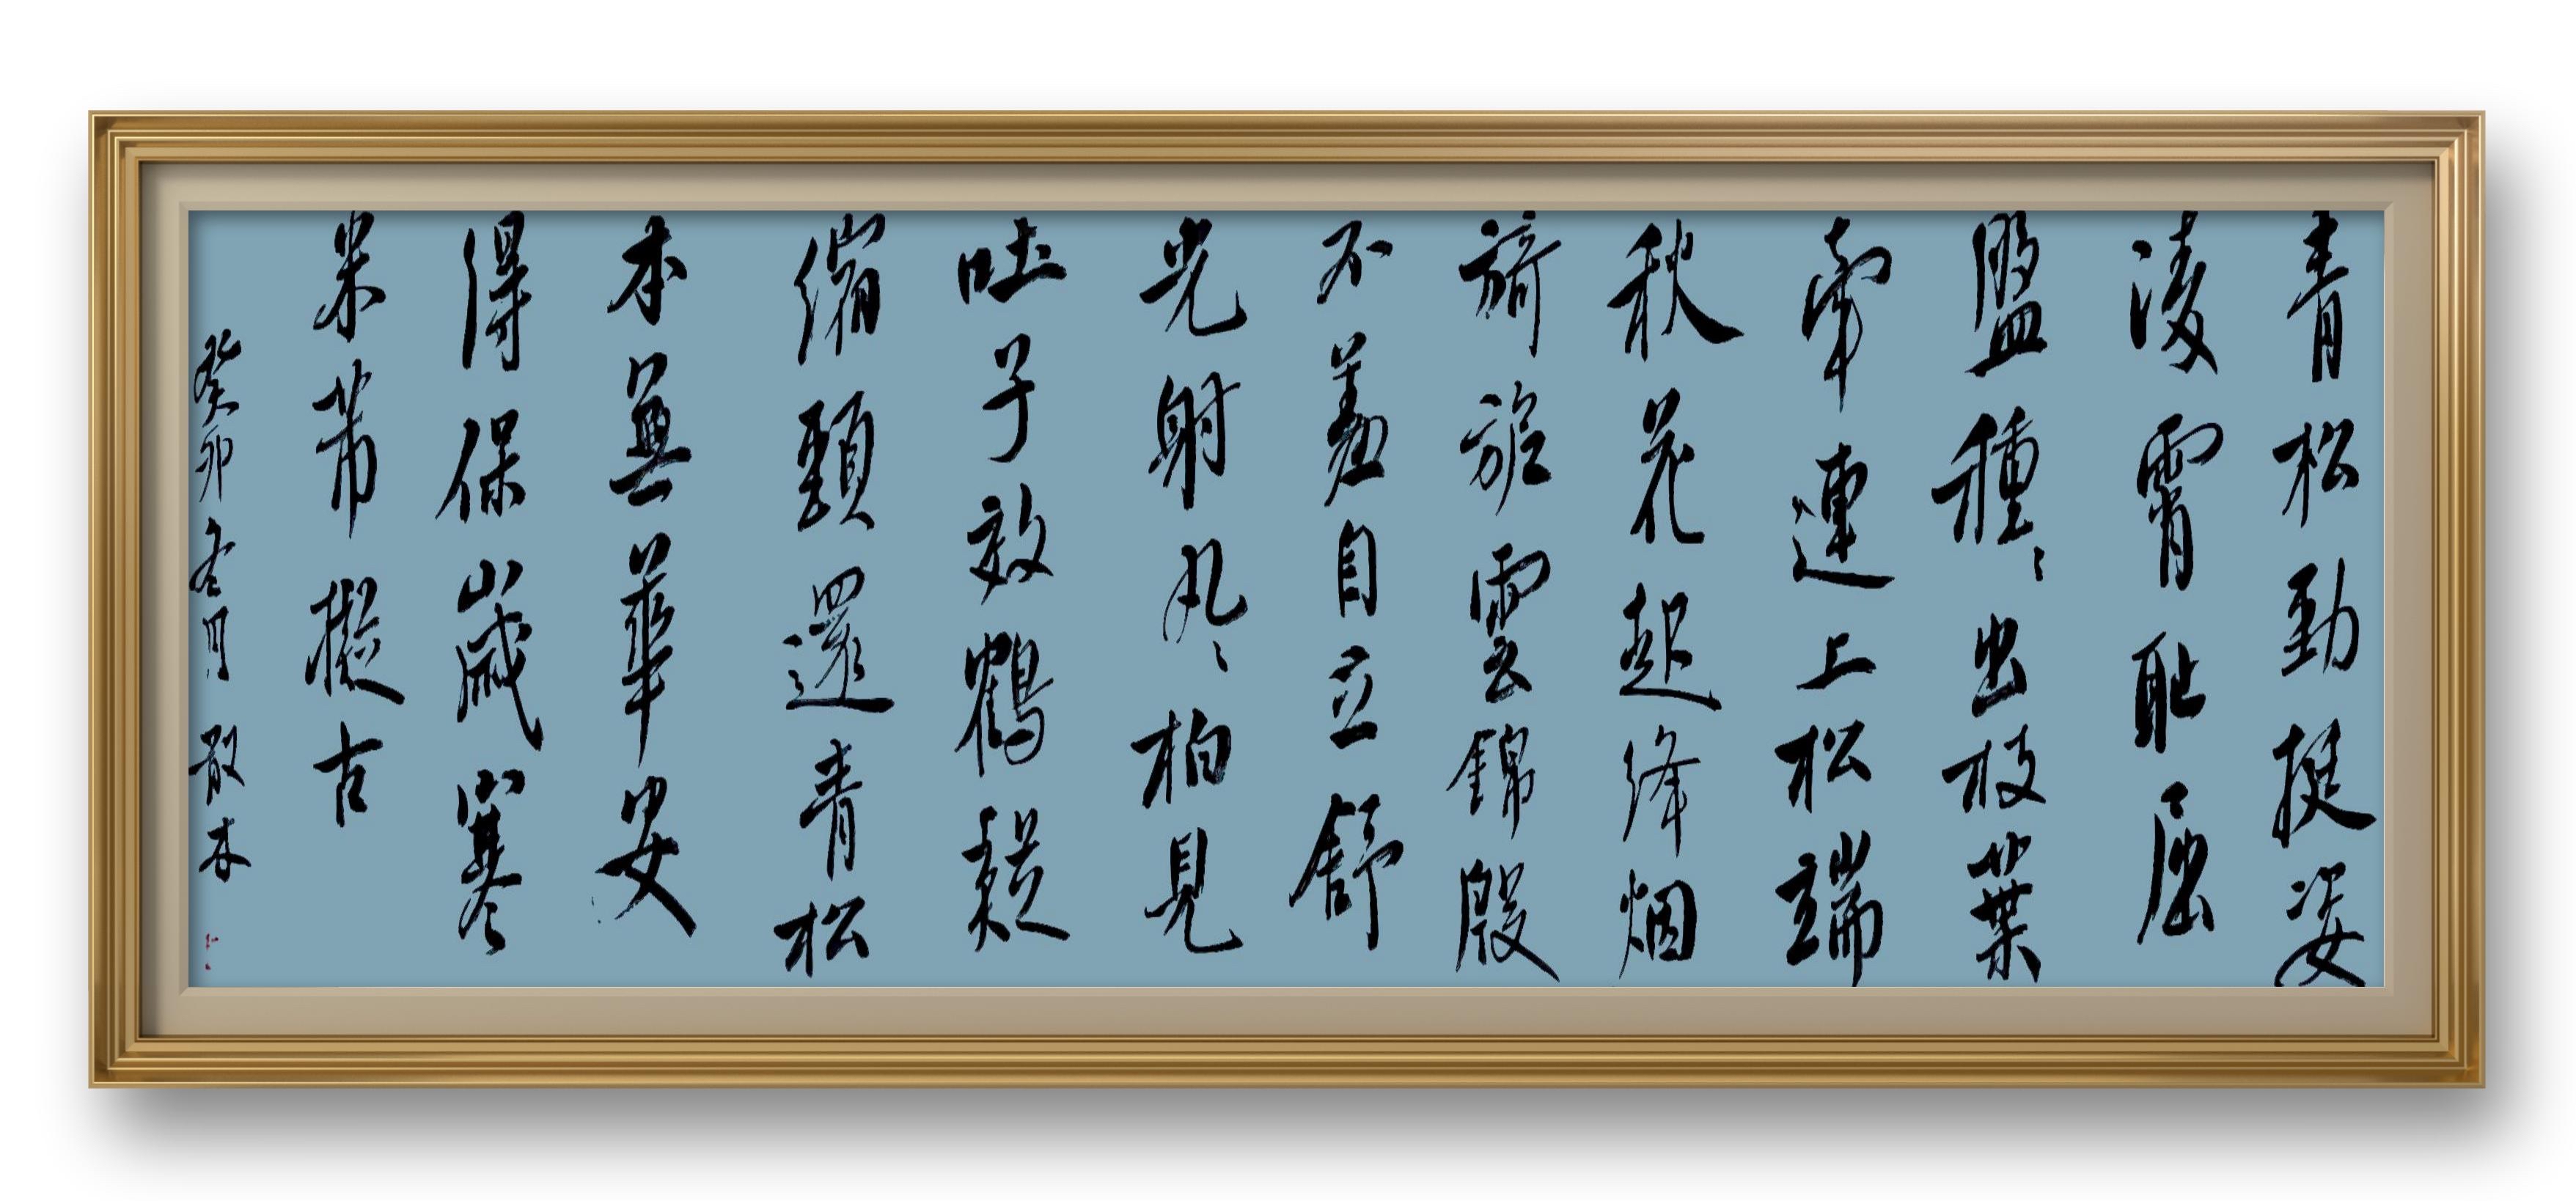 青松勁挺姿
淩霄恥屈
盤種〻出枝葉
牽連上松端
秋花起絳烟
旖旎雲錦殷
不羞自立舒
光射丸〻柏見
吐子效鶴疑
縮頸還青松
本無華安
得保歲寒
米芾擬古
癸卯冬月 散木